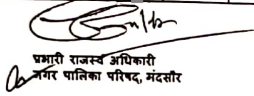 प्रभारी राजस्व अधिकारी
नगर पालिका परिषद, मंदसौर